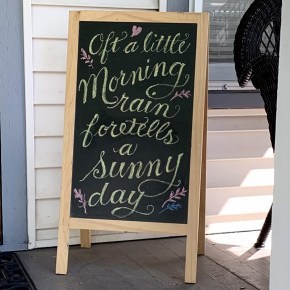 Oft a little
Morning
rain
foretells
a
sunny
day